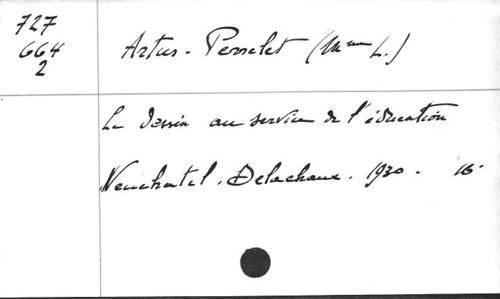 727
664
2
Artus-Perrelet (Mme L.)
Le dessin au service de l'éducation
Neuchatel. Delachaux. 1930. 16°